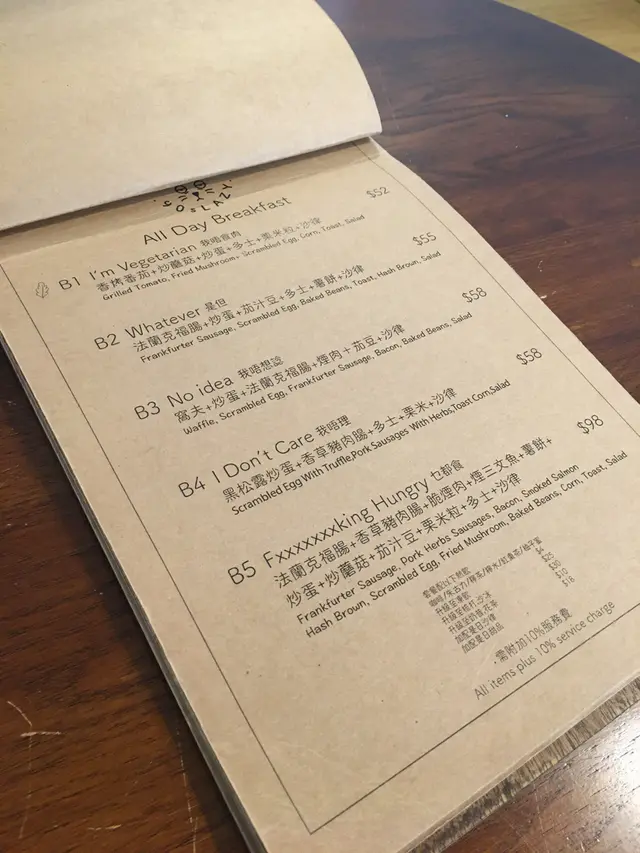 SO LAZY
All Day Breakfast
B1 I'm Vegetarian 我唔食肉 $52
香烤番茄+炒蘑菇+炒蛋+多士+栗米粒+沙律
Grilled Tomato, Fried Mushroom, Scrambled Egg, Corn, Toast, Salad
B2 Whatever 是但 $55
法蘭克福腸+炒蛋+茄汁豆+多士+薯餅+沙律
Frankfurter Sausage, Scrambled Egg, Baked Beans, Toast, Hash Brown, Salad
B3 No idea 我唔想諗 $58
窩夫+炒蛋+法蘭克福腸+煙肉+茄豆+沙律
Waffle, Scrambled Egg, Frankfurter Sausage, Bacon, Baked Beans, Salad
B4 I Don't Care 我唔理 $58
黑松露炒蛋+香草豬肉腸+多士+栗米+沙律
Scrambled Egg With Truffle,Pork Sausages With Herbs,Toast,Corn,Salad
B5 Fxxxxxxxking Hungry 乜都食 $98
法蘭克福腸+香草豬肉腸+脆煙肉+煙三文魚+薯餅+
炒蛋+炒蘑菇+茄汁豆+栗米粒+多士+沙律
Frankfurter Sausage, Pork Herbs Sausages, Bacon, Smoked Salmon
Hash Brown, Scrambled Egg, Fried Mushroom, Baked Beans, Corn, Toast, Salad
套餐配以下熱飲
$4
$25
$30
$10
加配是日沙律 $16
加配是日甜品
需附加10%服務費
All items plus 10% service charge